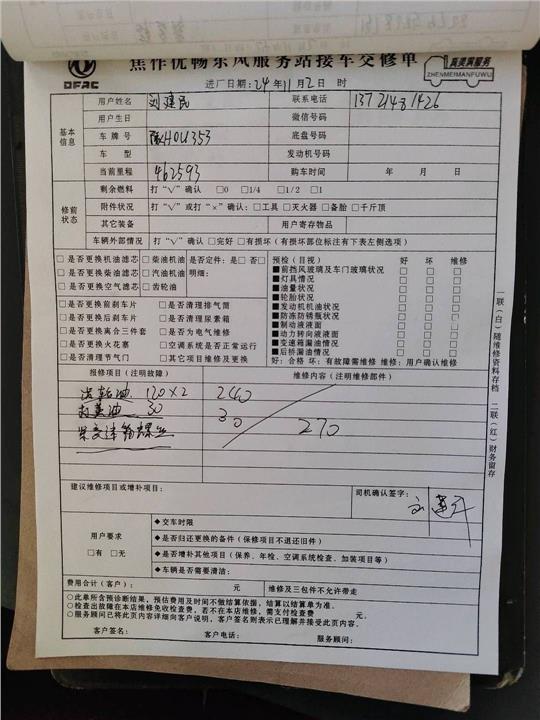 焦作优畅东风服务站接车交修单
DFAC
真美满服务
ZHENMEIMANFUWU
进厂日期：24年11月2日 时
基本信息
用户姓名 刘建民 联系电话
用户生日 微信号码
车牌号 底盘号码
车 型 发动机号码
当前里程 462593 购车时间 年 月 日
修前状态
剩余燃料 打“√”确认 □0 □1/4 □1/2 □1
附件状况 打“√”或打“×”确认：□工具 □灭火器 □备胎 □千斤顶
其它装备 用户寄存物品
车辆外部情况 打“√”确认 □完好 □有损坏（有损坏部位标注有下表左侧选项）
□是否更换机油滤芯 □柴油机油 □是否定件：是□ 否□
□是否更换柴油滤芯 □汽油机油 明细：
□是否更换空气滤芯 □齿轮油
□是否更换前刹车片 □是否清理排气筒
□是否更换后刹车片 □是否清理尿素箱
□是否更换离合三件套 □是否为电气维修
□是否更换火花塞 □空调系统是否正常运行
□是否清理节气门 □其它项目维修及更换
预检（目视） 好 坏 维修
■前挡风玻璃及车门玻璃状况 □ □ □
■灯具情况 □ □ □
■油量状况 □ □ □
■轮胎状况 □ □ □
■发动机机油状况 □ □ □
■防冻防锈瓶状况 □ □ □
■制动液液面 □ □ □
■动力转向液液面 □ □ □
■变速箱漏油情况 □ □ □
■后桥漏油情况 □ □ □
好：合格 坏：有故障需维修 维修：用户确认维修
报修项目（注明故障） 维修内容（注明维修部件）
齿轮油 120×2 240
打黄油 30 30
270
建议维修项目或增补项目： 司机确认签字：
用户要求
□有 □无
◆交车时限
◆是否归还更换的备件（保修项目不退还旧件）
◆是否增补其他项目（保养、年检、空调系统检查、加装项目等）
◆车辆是否需要清洁：
费用合计（客户）： 元 维修及三包件不允许带走
○此单所含预诊断结果，预估费用及时间不做结算依据，结算以结算单为准。
○检查出故障在本店维修免收检查费，若不在本店维修，需支付检查费 元。
○服务顾问已将此页内容详细向客户说明，客户签名则表示已理解并接受此页内容。
客户签名： 客户电话： 服务顾问：
一联（白）随维修资料存档
二联（红）财务留存